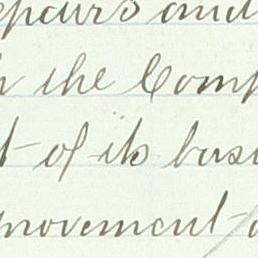 epairs and
the Comp
t of its busi
movement